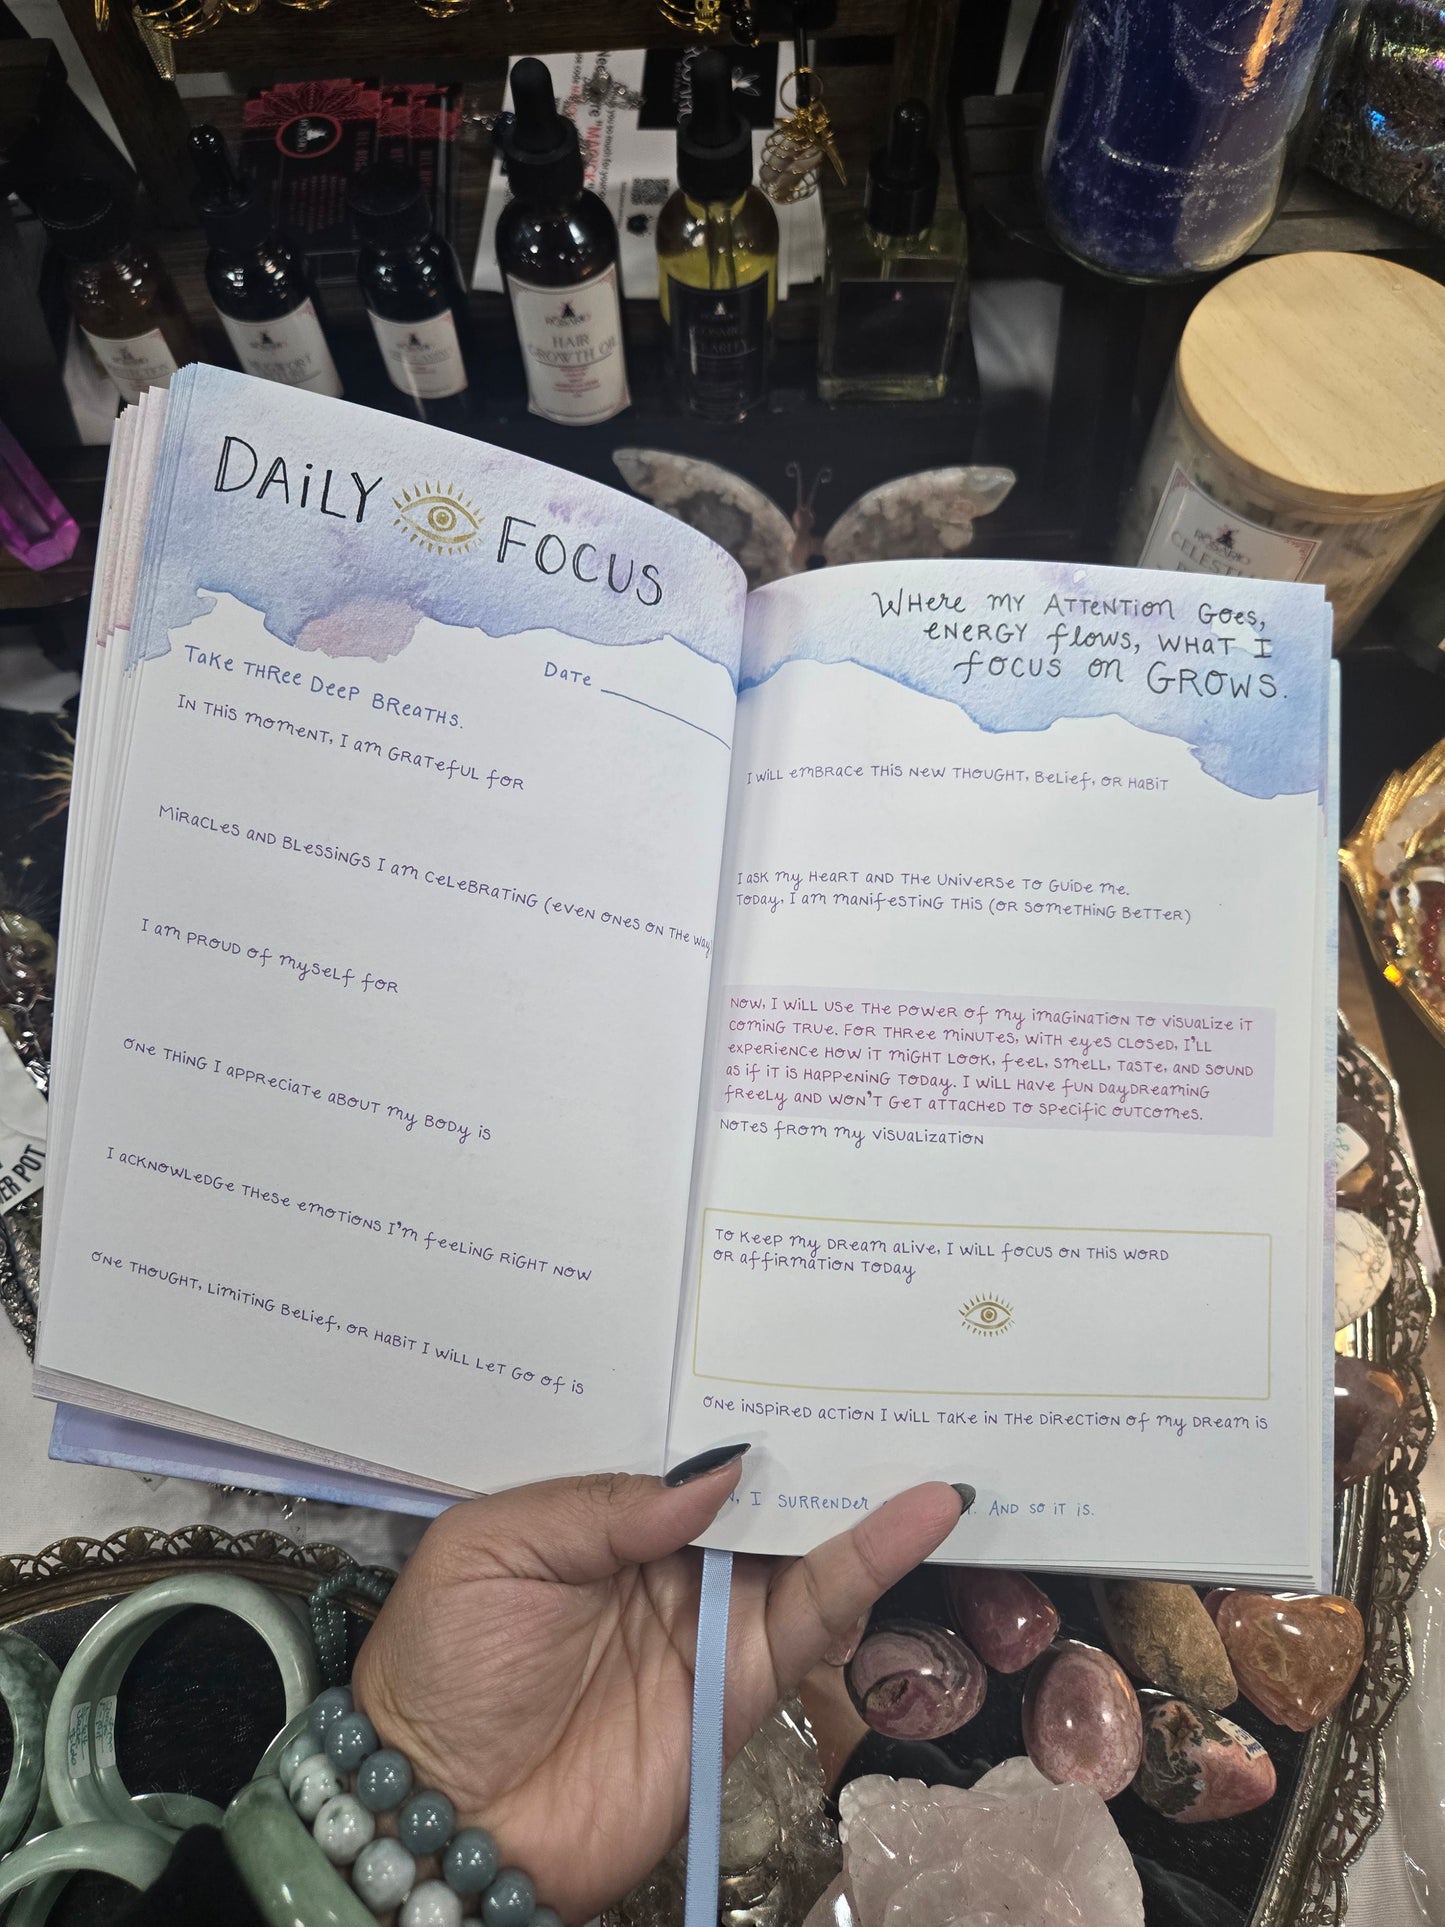 DAILY FOCUS
TAKE THREE DEEP BREATHS.
DATE
IN THIS MOMENT, I AM GRATEFUL FOR
MIRACLES AND BLESSINGS I AM CELEBRATING (EVEN ONES ON THE WAY)
I AM PROUD OF MYSELF FOR
ONE THING I APPRECIATE ABOUT MY BODY IS
I ACKNOWLEDGE THESE EMOTIONS I'M FEELING RIGHT NOW
ONE THOUGHT, LIMITING BELIEF, OR HABIT I WILL LET GO OF IS
WHERE MY ATTENTION GOES,
ENERGY FLOWS, WHAT I
FOCUS ON GROWS.
I WILL EMBRACE THIS NEW THOUGHT, BELIEF, OR HABIT
I ASK MY HEART AND THE UNIVERSE TO GUIDE ME.
TODAY, I AM MANIFESTING THIS (OR SOMETHING BETTER)
NOW, I WILL USE THE POWER OF MY IMAGINATION TO VISUALIZE IT
COMING TRUE. FOR THREE MINUTES, WITH EYES CLOSED, I'LL
EXPERIENCE HOW IT MIGHT LOOK, FEEL, SMELL, TASTE, AND SOUND
AS IF IT IS HAPPENING TODAY. I WILL HAVE FUN DAYDREAMING
FREELY AND WON'T GET ATTACHED TO SPECIFIC OUTCOMES.
NOTES FROM MY VISUALIZATION
TO KEEP MY DREAM ALIVE, I WILL FOCUS ON THIS WORD
OR AFFIRMATION TODAY
ONE INSPIRED ACTION I WILL TAKE IN THE DIRECTION OF MY DREAM IS
I SURRENDER AND SO IT IS.
ROSARIO
HAIR
GROWTH OIL
ROSARIO
"MAGICK
POT